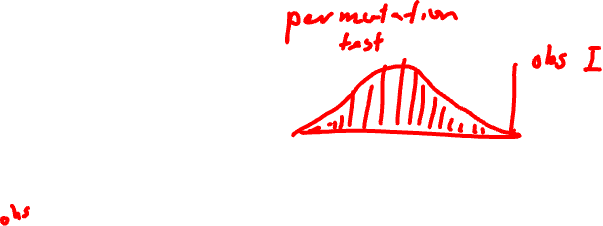 permutation
test
obs I
obs